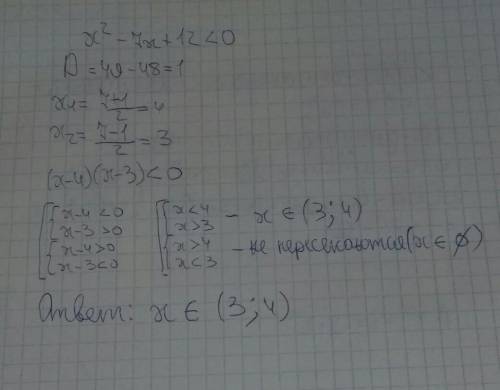 x² - 7x + 12 < 0
D = 49 - 48 = 1
x₁ = (7+1)/2 = 4
x₂ = (7-1)/2 = 3
(x-4)(x-3) < 0
[ { x-4 < 0 [ { x < 4 - x ∈ (3; 4)
{ x-3 > 0 { x > 3
{ x-4 > 0 { x > 4 - не пересекаются (x ∈ ∅)
{ x-3 < 0 { x < 3
Ответ: x ∈ (3; 4)